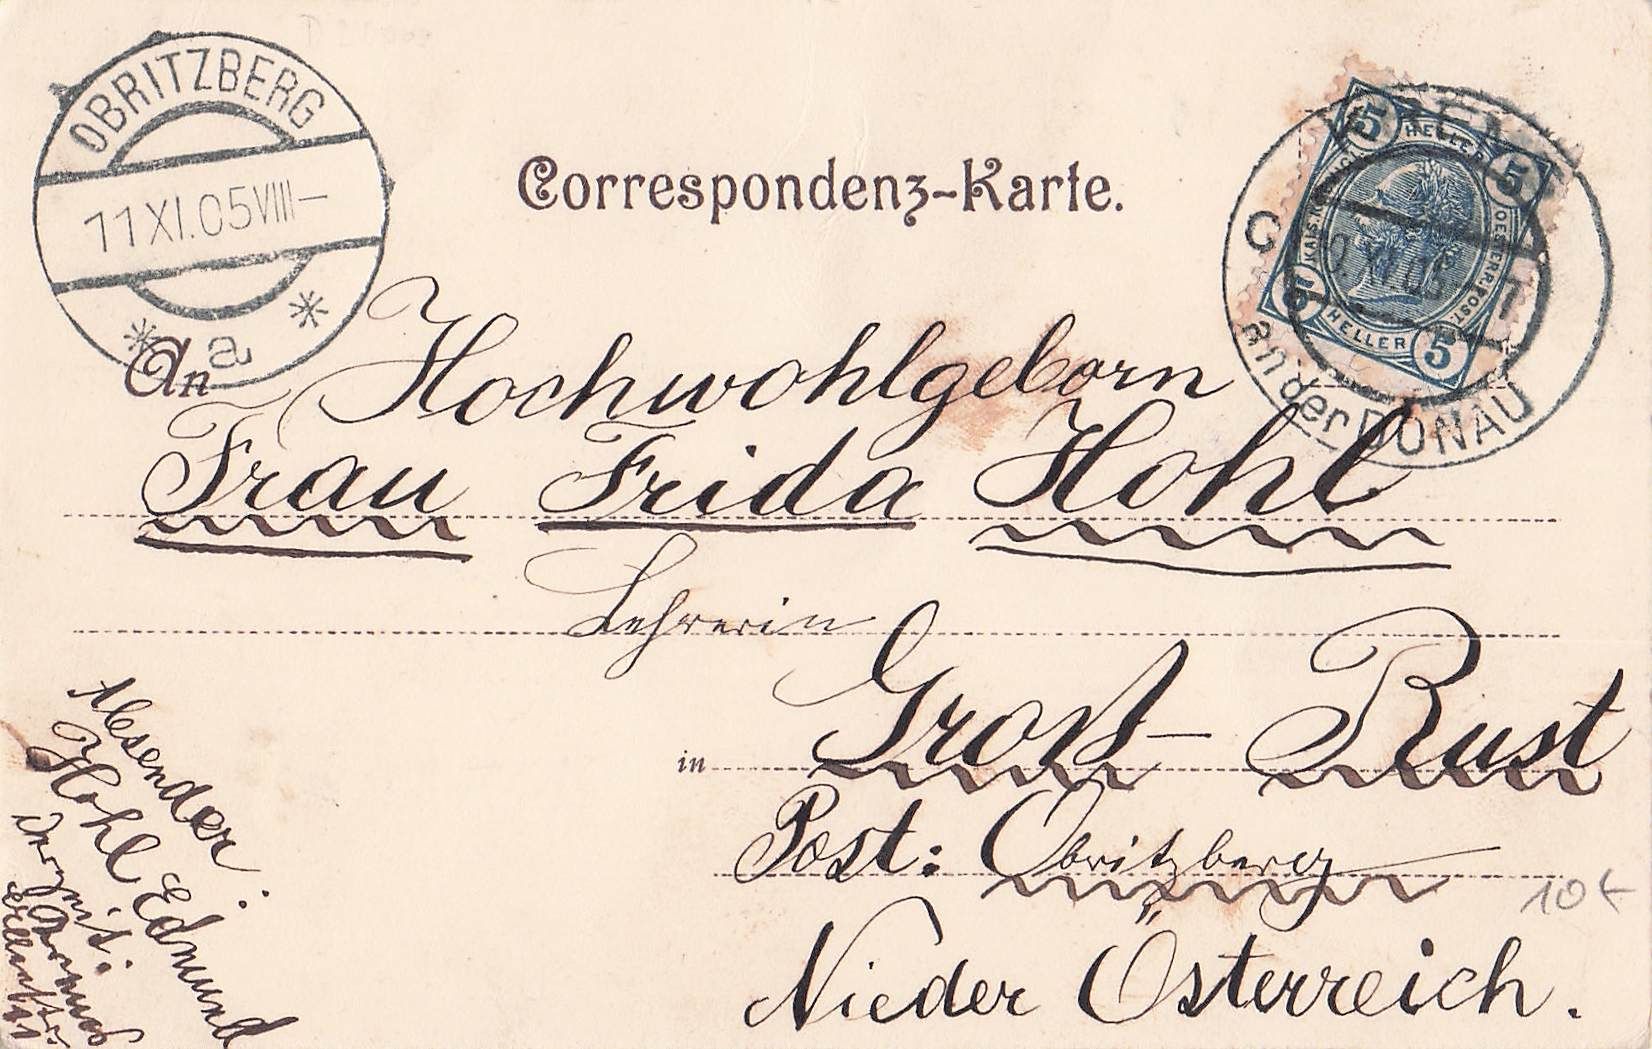 OBRITZBERG
11 XI.05 VIII–
* a *
Correspondenz-Karte.
5 HELLER 5
KAIS.K. OESTERR.POST.
5 HELLER 5
KREMS
C
an der DONAU
An Hochwohlgeborn
Frau Frida Hohl
Lehrerin
in Groß-Rust
Post: Obritzberg
Nieder Österreich.
Absender:
Hohl Edmund
10 €